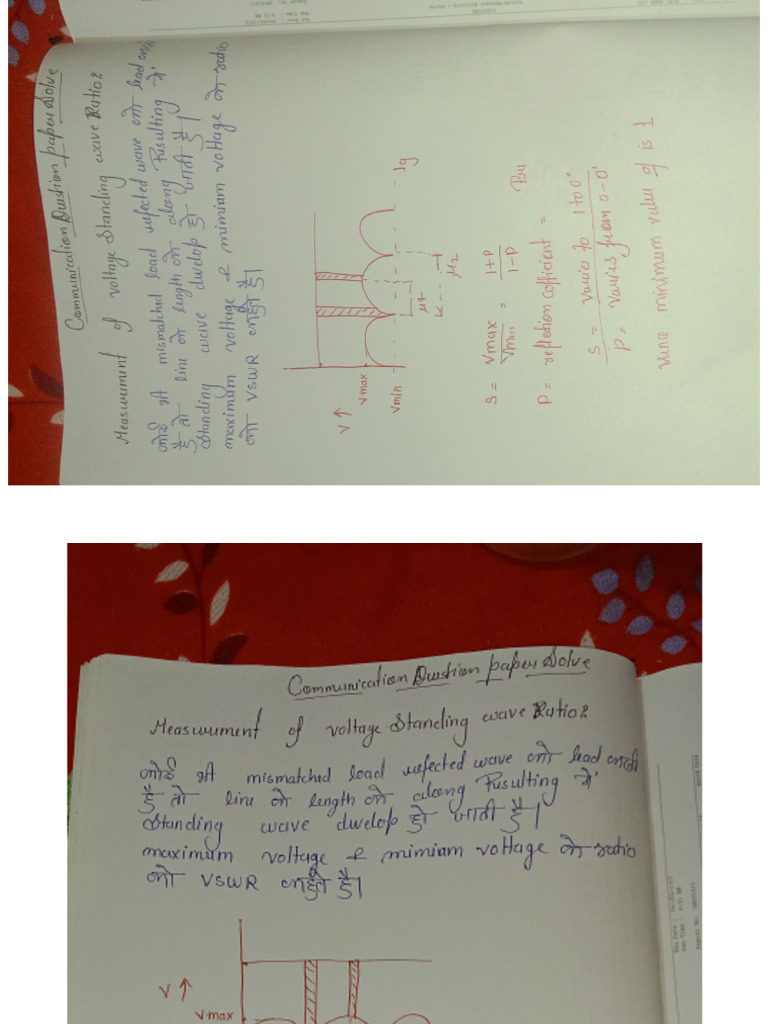 Communication Question paper Solve
Measurement of voltage Standing wave Ratio:
कोई भी mismatched load reflected wave को lead करती
है तो line के length के along Rusulting में
Standing wave dwelop हो जाती है।
maximum voltage & mimiam voltage के ratio
को VSWR कहते है।
V ↑
Vmax
Vmin
S = Vmax / Vmin = 1+P / 1-P
P = reflection cofficient =
S = varies to 1 to
P, varies from 0-0'
since minimum value of is 1
Communication Question paper Solve
Measurement of voltage Standing wave Ratio:
कोई भी mismatched load reflected wave को lead करती
है तो line के length के along Rusulting में
Standing wave dwelop हो जाती है।
maximum voltage & mimiam voltage के ratio
को VSWR कहते है।
V ↑
V.max